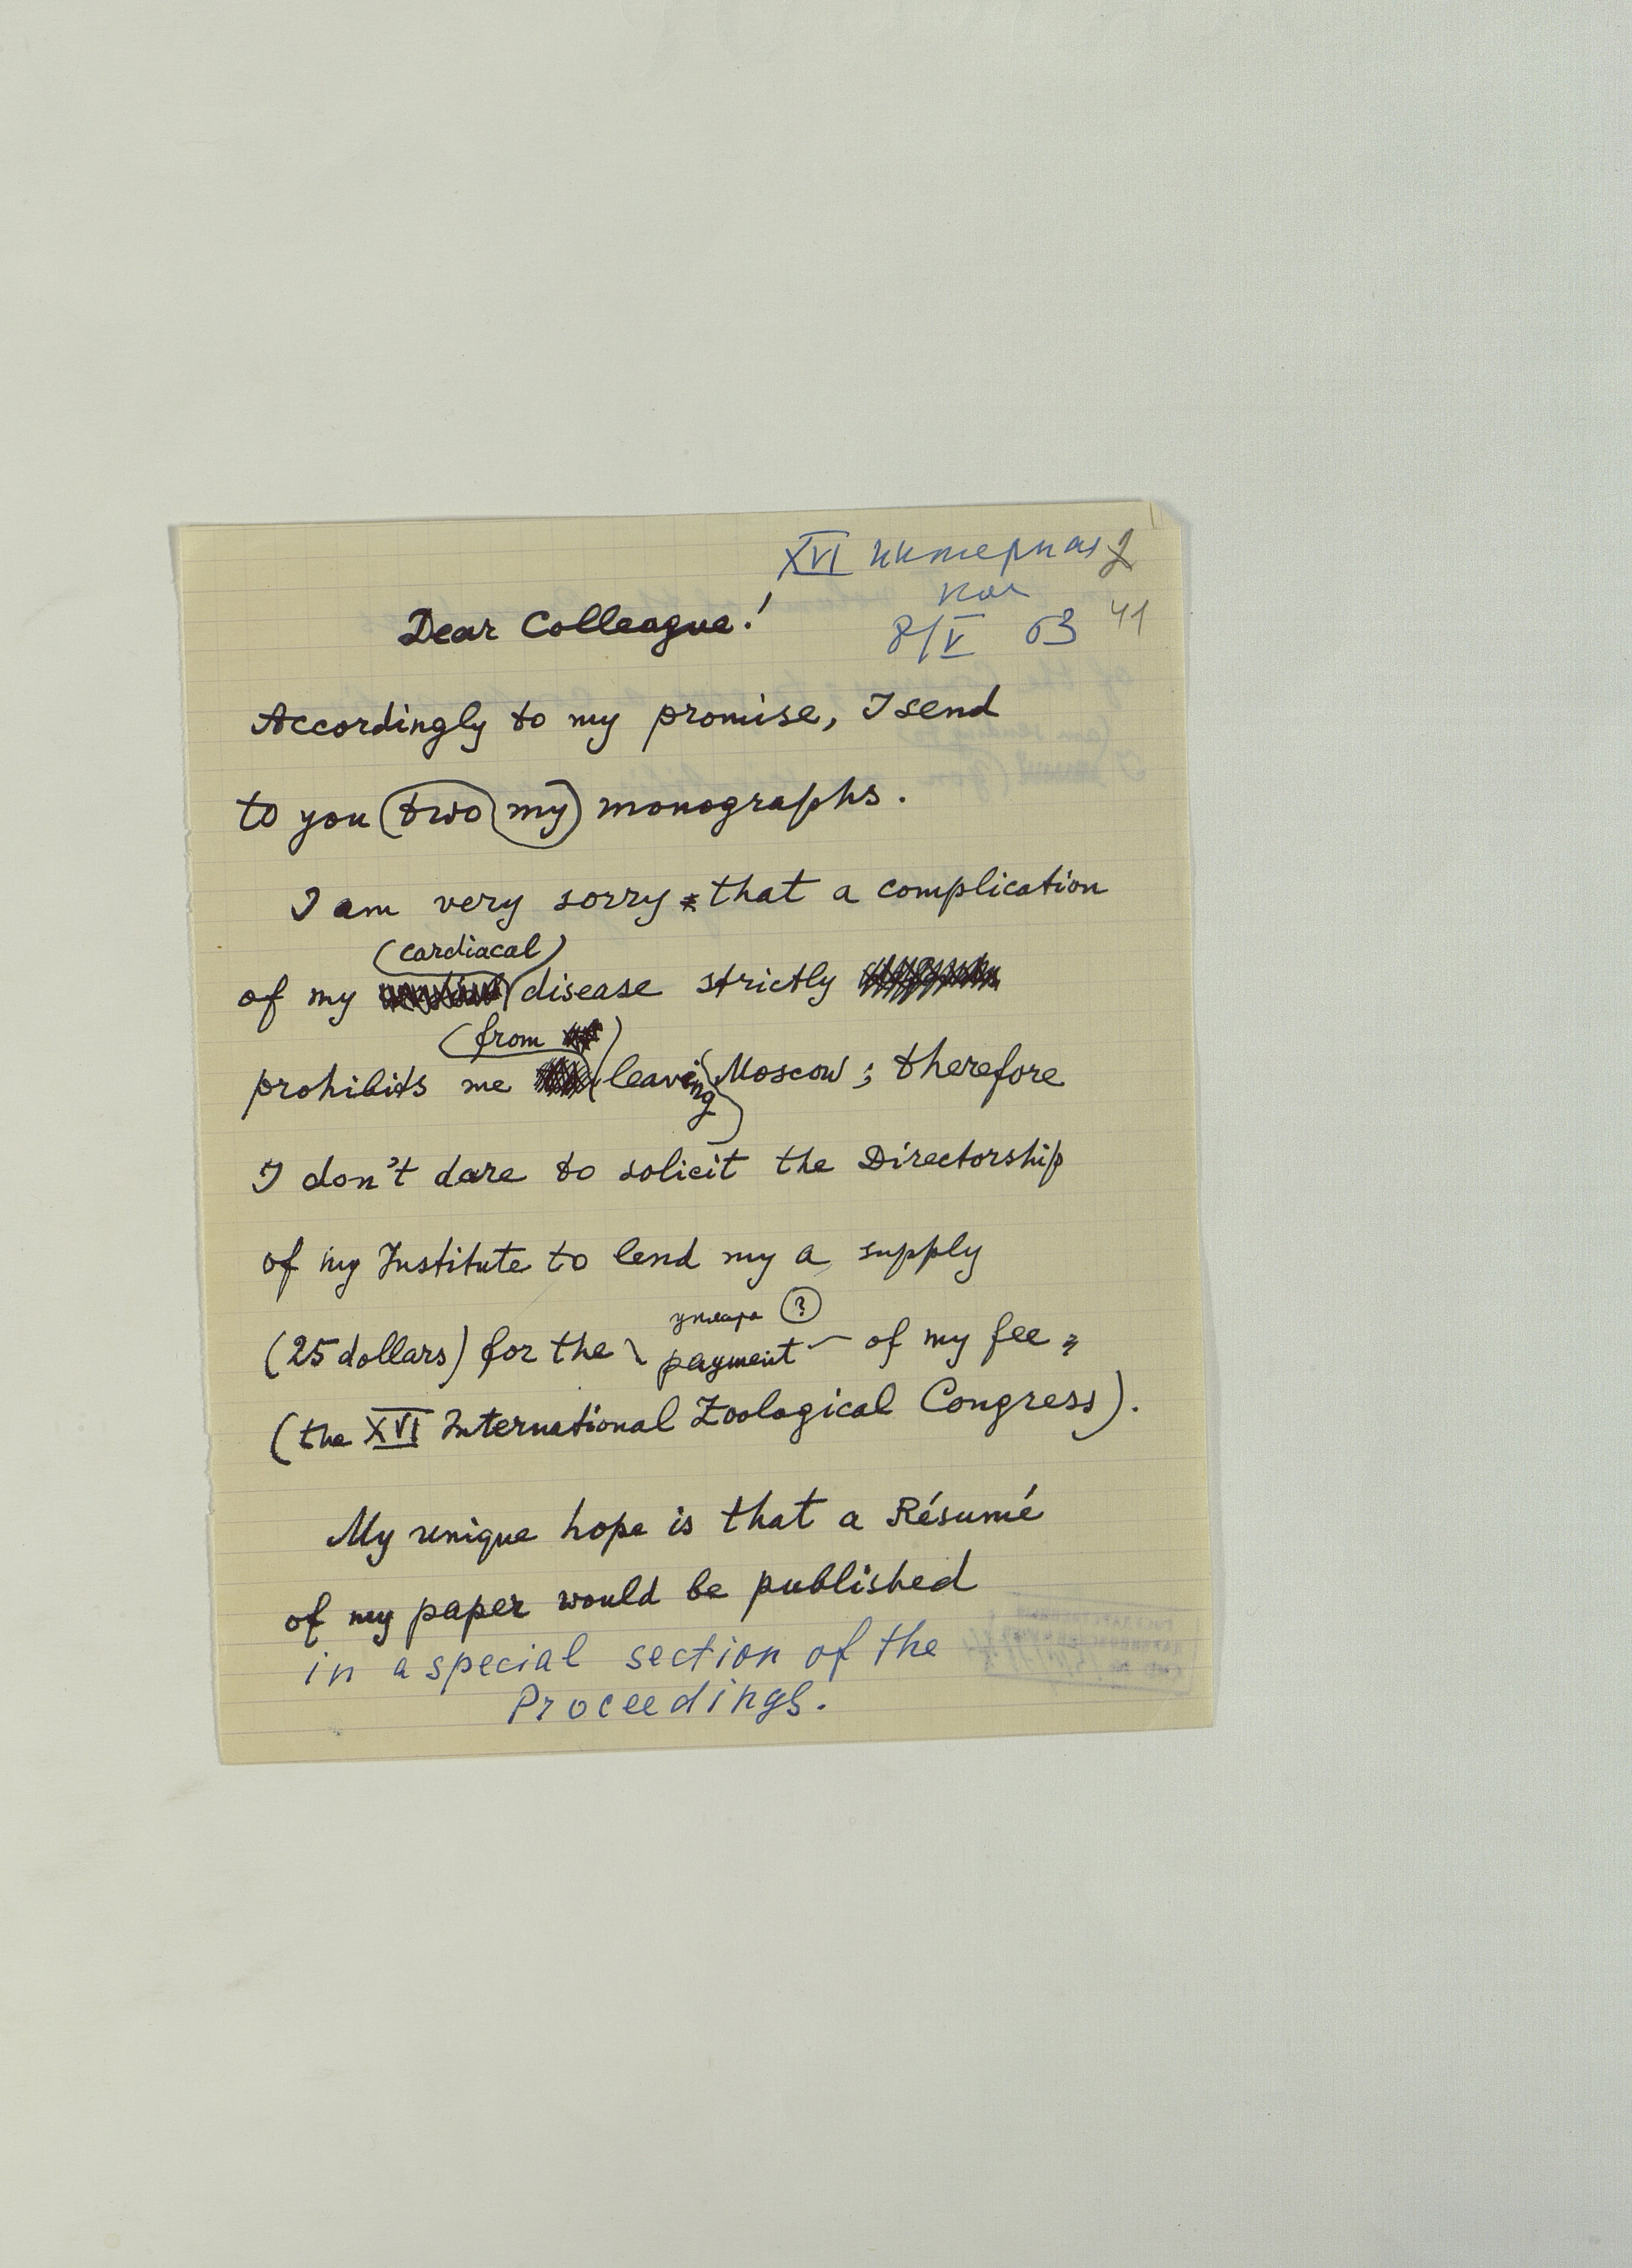 XVI интернац
8/V 63 41
Dear Colleague!
Accordingly to my promise, I send
to you two my monographs.
I am very sorry that a complication
(cardiacal)
of my disease strictly
(from
prohibits me leaving Moscow; therefore
I don't dare to solicit the Directorship
of my Institute to lend my a supply
уплата ?
(25 dollars) for the payment of my fee
(the XVI International Zoological Congress).
My unique hope is that a Résumé
of my paper would be published
in a special section of the
Proceedings.